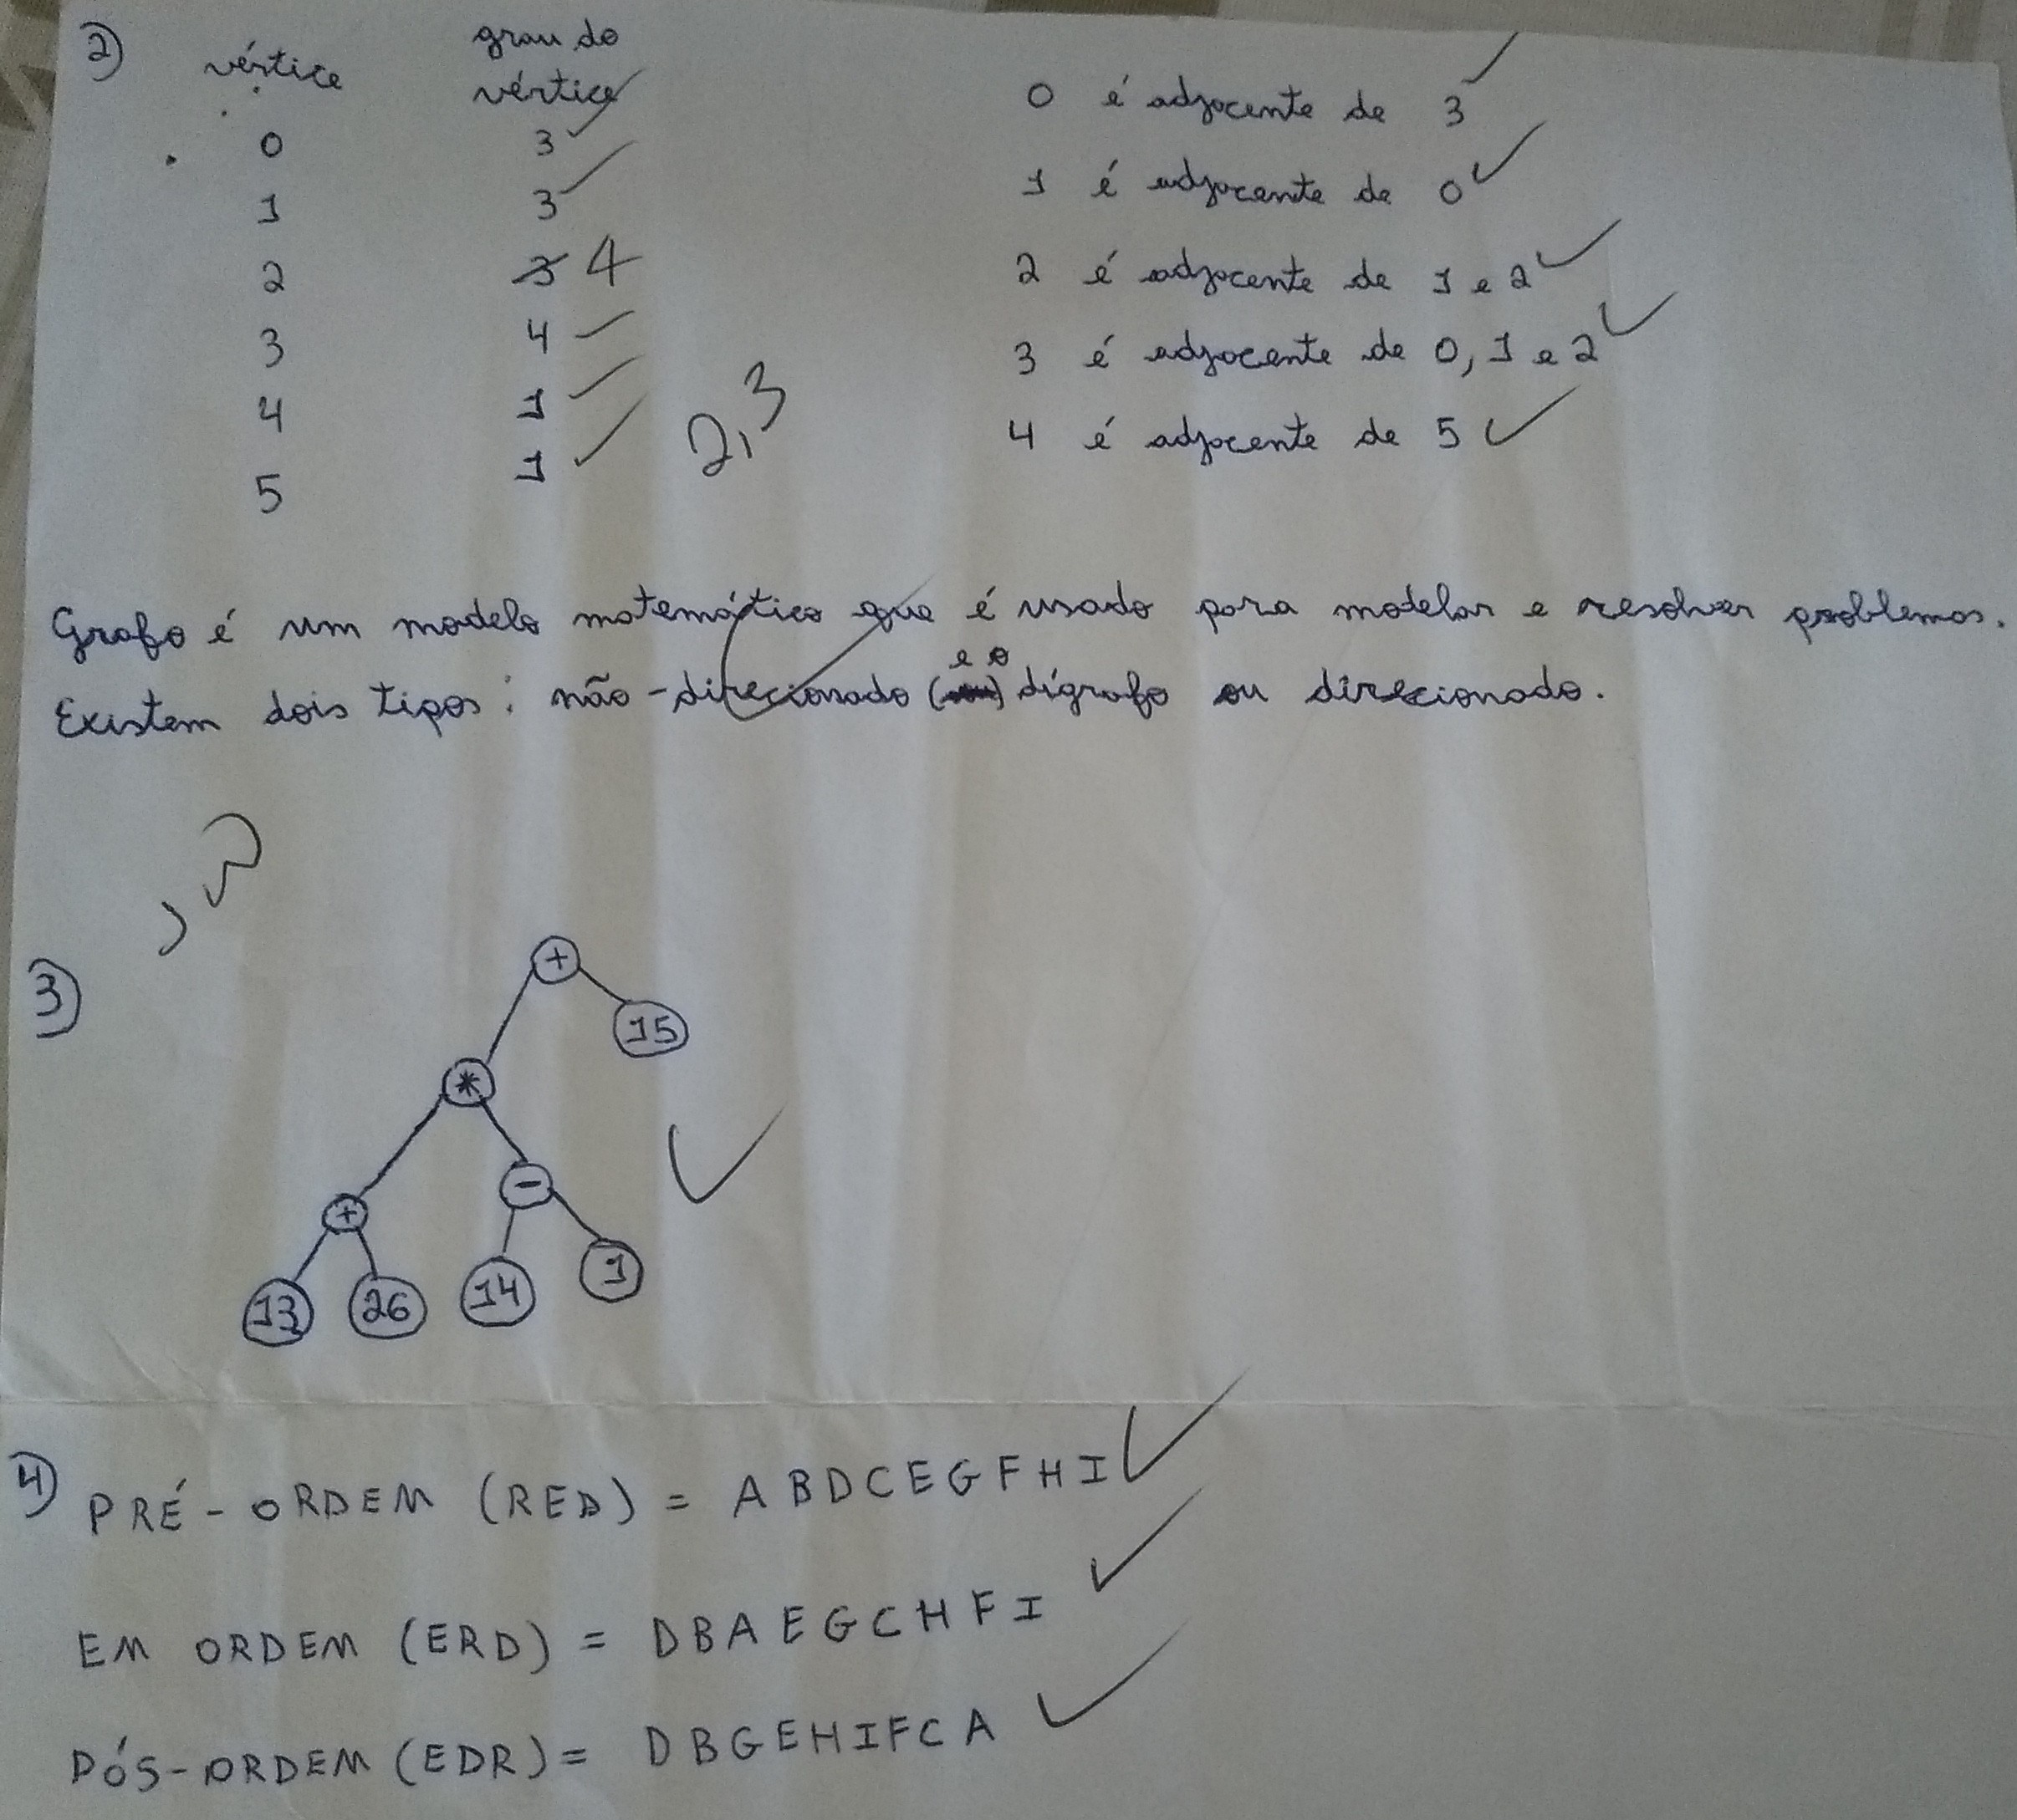 2) vértice grau do
vértice
0 3
1 3
2 3 4
3 4
4 1
5 1
2,3
0 é adjacente de 3
1 é adjacente de 0
2 é adjacente de 1 e 2
3 é adjacente de 0, 1 e 2
4 é adjacente de 5
Grafo é um modelo matemático que é usado para modelar e resolver problemas.
e o
Existem dois tipos: não-direcionado ( ) dígrafo ou direcionado.
3)
+
15
*
+ -
13 26 14 1
4) PRÉ-ORDEM (RED) = ABDCEGFHI
EM ORDEM (ERD) = DBAEGCHFI
PÓS-ORDEM (EDR) = DBGEHIFCA